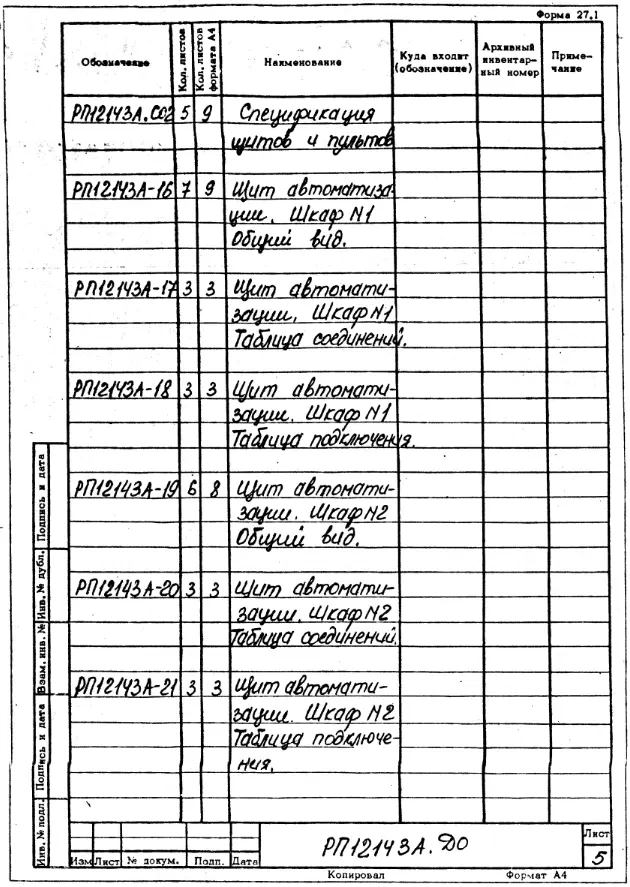 Форма 27.1
Обозначение
Кол. листов
Кол. листов формата А4
Наименование
Куда входит (обозначение)
Архивный инвентарный номер
Примечание
РП12143А.СО2 5 9 Спецификация
щитов и пультов
РП12143А-16 7 9 Щит автоматиза-
ции. Шкаф N1
Общий вид.
РП12143А-17 3 3 Щит автомати-
зации, Шкаф N1
Таблица соединений.
РП12143А-18 3 3 Щит автомати-
зации. Шкаф N1
Таблица подключения.
РП12143А-19 6 8 Щит автомати-
зации. Шкаф N2
Общий вид.
РП12143А-20 3 3 Щит автомати-
зации. Шкаф N2
Таблица соединений.
РП12143А-21 3 3 Щит автомати-
зации. Шкаф N2
Таблица подключе-
ния.
Инв. № подл. Подпись и дата Взам. инв. № Инв. № дубл. Подпись и дата
Изм Лист № докум. Подп. Дата
РП12143А.ДО
Лист
5
Копировал Формат А4